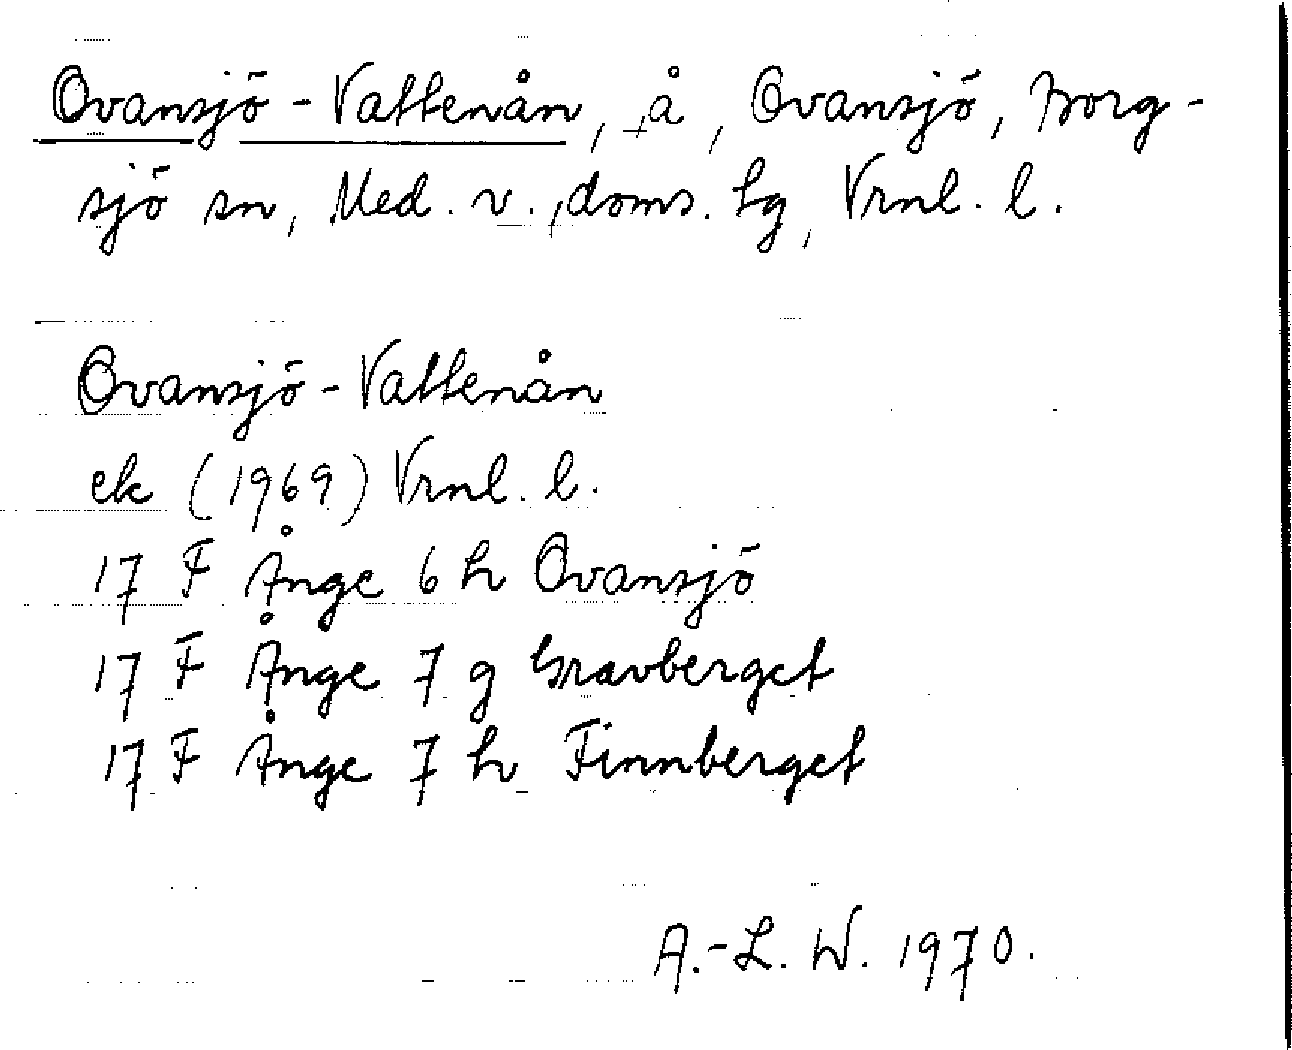 Ovansjö-Vattenån, å, Ovansjö, Borg-
sjö sn, Med. v., doms. hg, Vrnl. l.
Ovansjö-Vattenån
ek (1969) Vrnl. l.
17 F Ånge 6 h Ovansjö
17 F Ånge 7 g Gravberget
17 F Ånge 7 h Finnberget
A.-L. W. 1970.